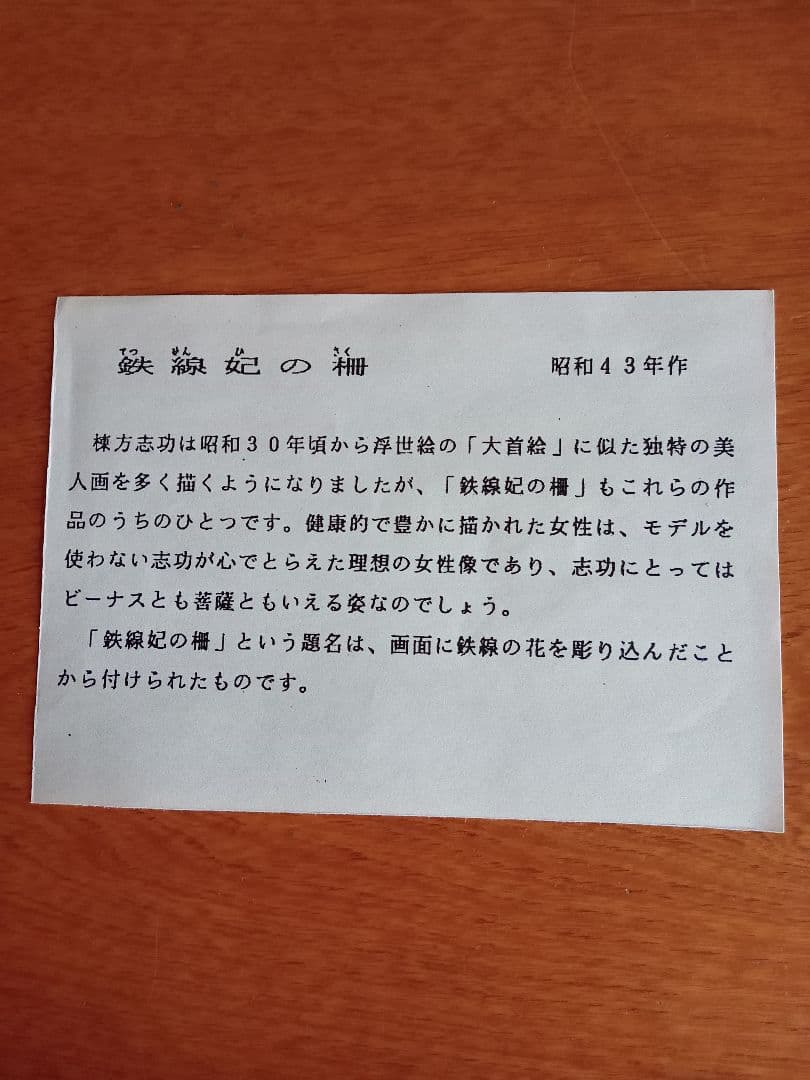 鉄線妃の柵 昭和43年作
棟方志功は昭和30年頃から浮世絵の「大首絵」に似た独特の美
人画を多く描くようになりましたが、「鉄線妃の柵」もこれらの作
品のうちのひとつです。健康的で豊かに描かれた女性は、モデルを
使わない志功が心でとらえた理想の女性像であり、志功にとっては
ビーナスとも菩薩ともいえる姿なのでしょう。
「鉄線妃の柵」という題名は、画面に鉄線の花を彫り込んだこと
から付けられたものです。